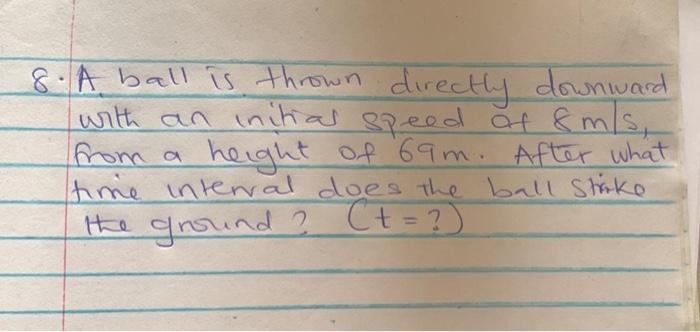 8. A ball is thrown directly downward
with an initial speed of 8m/s,
from a height of 69m. After what
time interval does the ball strike
the ground? (t=?)